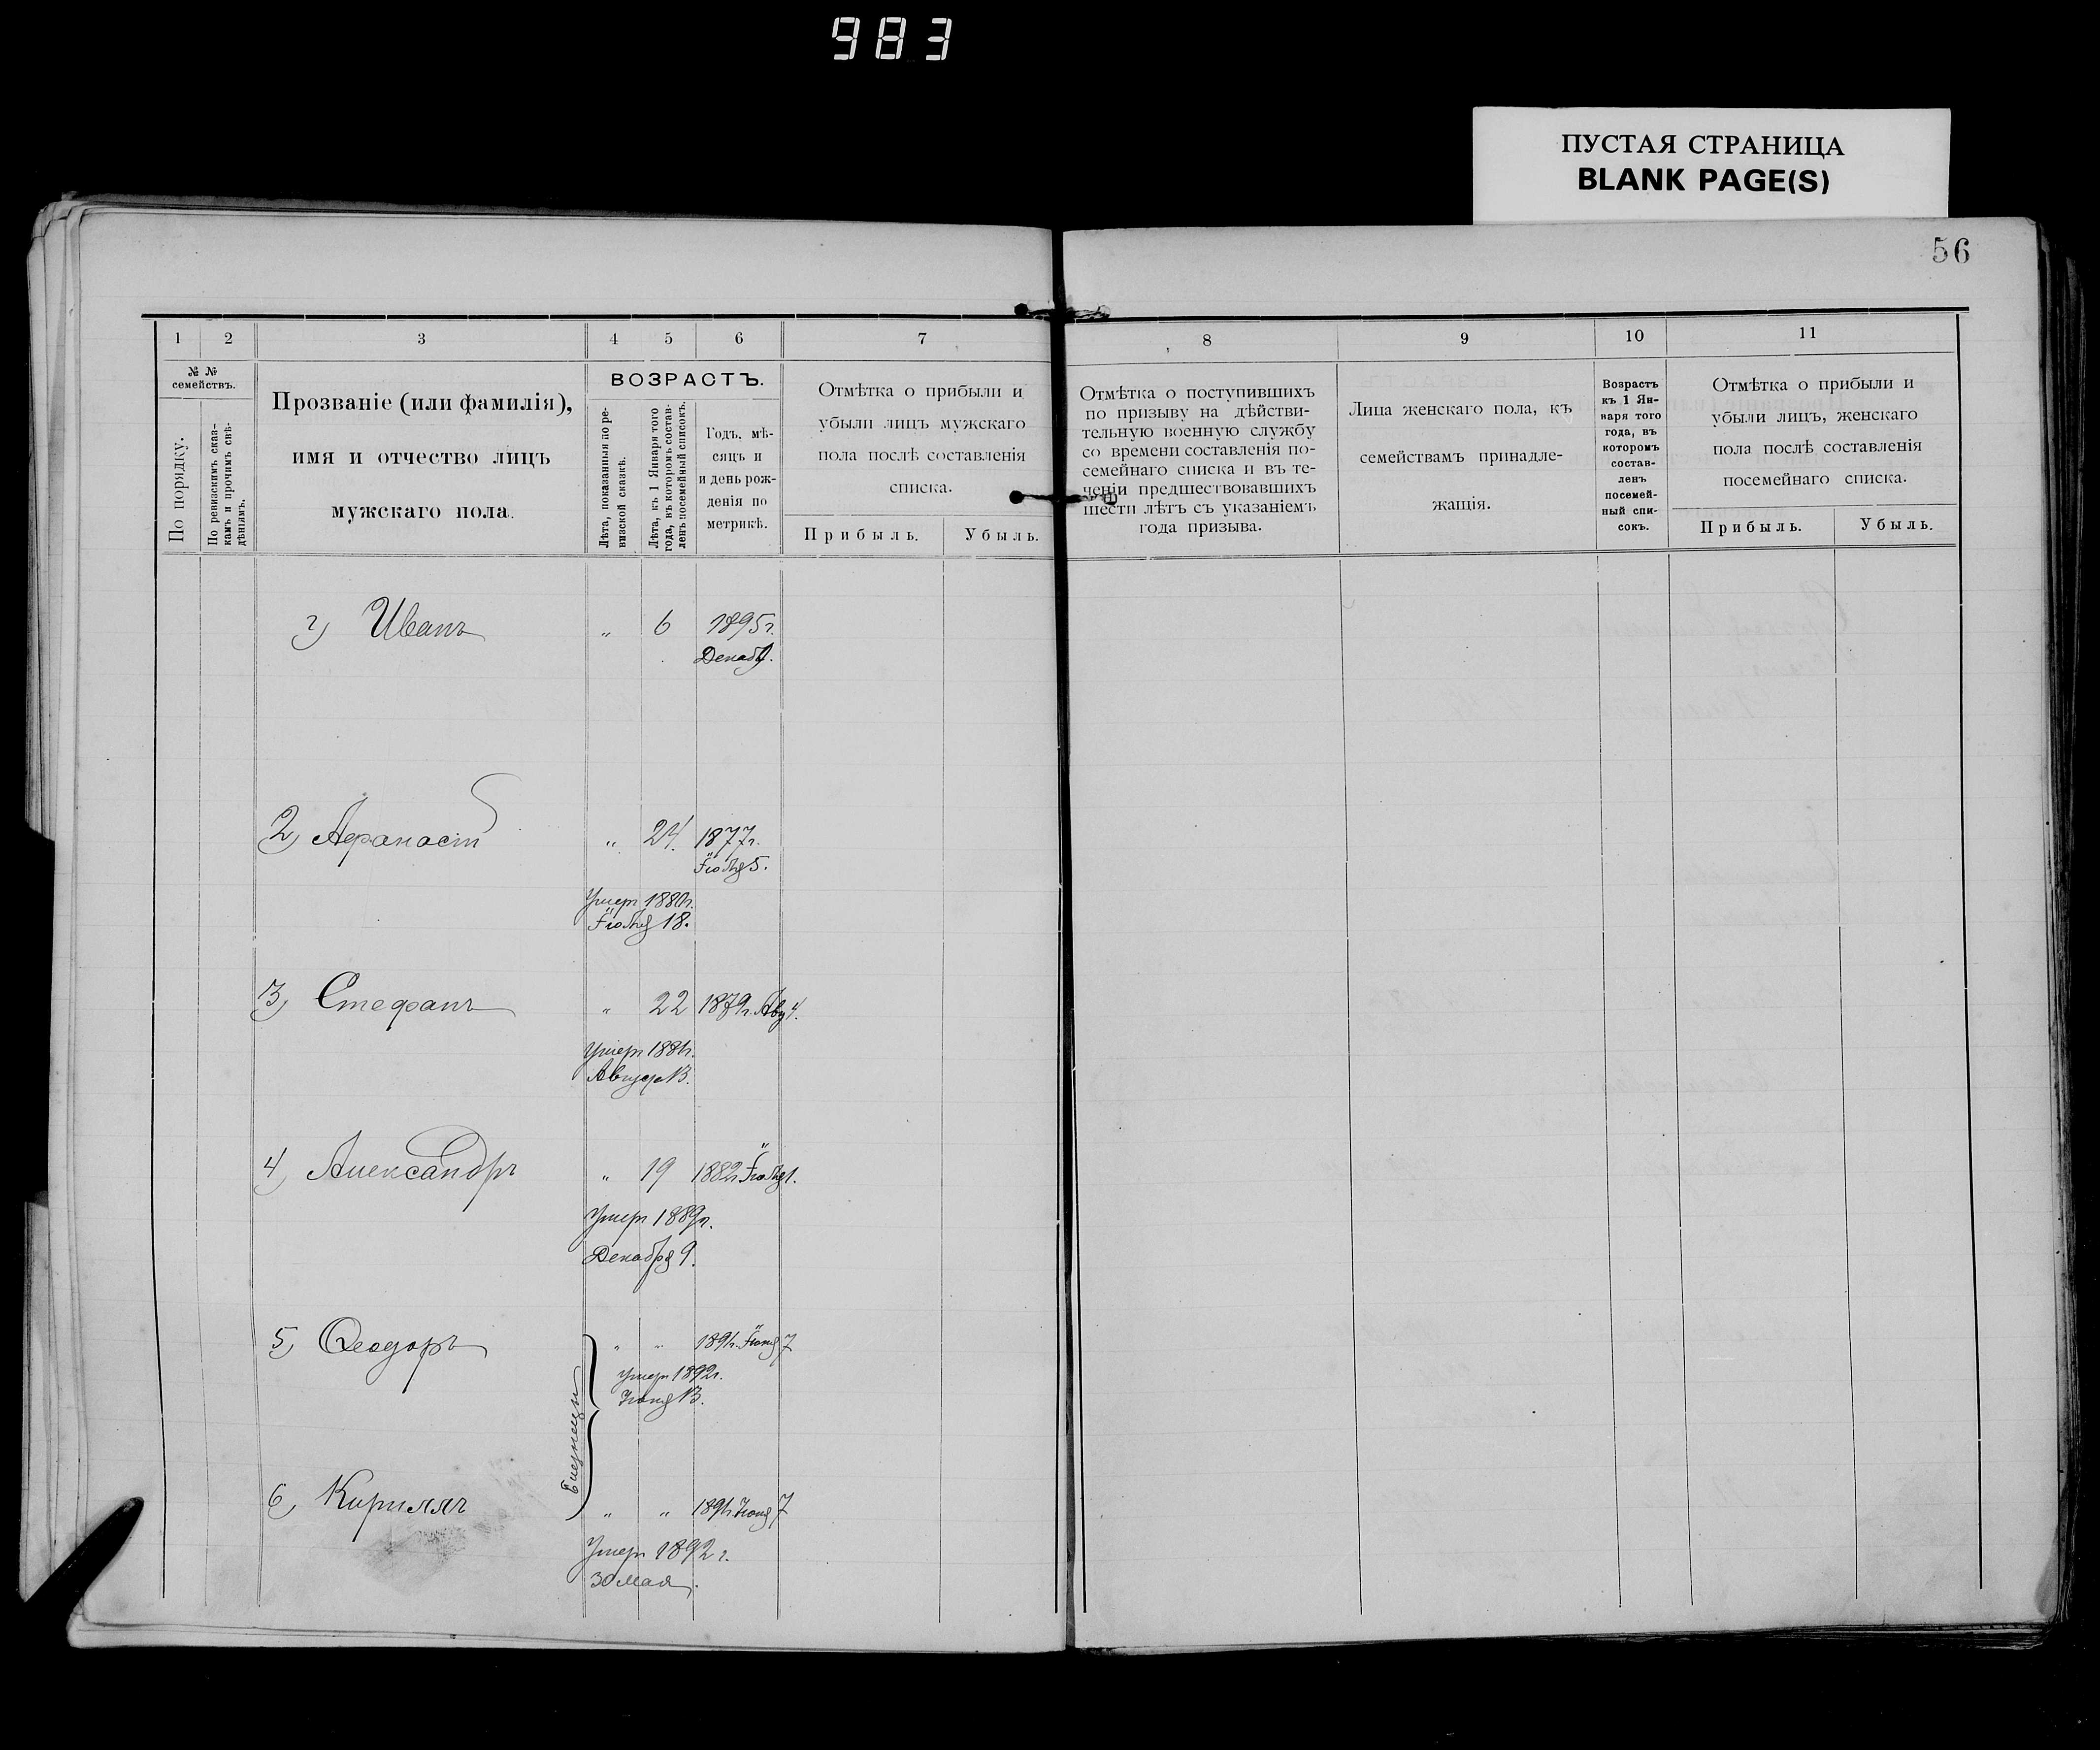 983
ПУСТАЯ СТРАНИЦА
BLANK PAGE(S)
56
1
2
3
4
5
6
7
8
9
10
11
№ №
семействъ.
По порядку.
По ревизскимъ сказ-
камъ и прочимъ свѣ-
дѣніямъ.
Прозваніе (или фамилія),
имя и отчество лицъ
мужскаго пола.
ВОЗРАСТЪ.
Лѣта, показанныя по ре-
визской сказкѣ.
Лѣта, къ 1 Января того
года, въ которомъ состав-
ленъ посемейный списокъ.
Годъ, мѣ-
сяцъ и
и день рож-
денія по
метрикѣ.
Отмѣтка о прибыли и
убыли лицъ мужскаго
пола послѣ составленія
списка.
Прибыль.
Убыль.
Отмѣтка о поступившихъ
по призыву на дѣйстви-
тельную военную службу
со времени составленія по-
семейнаго списка и въ те-
ченіи предшествовавшихъ
шести лѣтъ съ указаніемъ
года призыва.
Лица женскаго пола, къ
семействамъ принадле-
жащія.
Возрастъ
къ 1 Ян-
варя того
года, въ
которомъ
состав-
ленъ
посемей-
ный спи-
сокъ.
Отмѣтка о прибыли и
убыли лицъ, женскаго
пола послѣ составленія
посемейнаго списка.
Прибыль.
Убыль.
г) Иванъ " 6 1895г.
2) Афанасій " 24. 1877г.
5.
Умеръ
18.
3) Стефанъ " 22 1879г. Авг 4.
Умеръ 1881г.
Август 13.
4) Александръ " 19 1882г.
Умеръ 1889г.
Декабря 9.
5) Ѳеодоръ " " 1891г. Іюня 7
умеръ 1892г.
Іюня 13.
Близнецы
6) Кириллъ " " 1891г. Іюня 7
Умеръ 1892 г.
30 Мая.